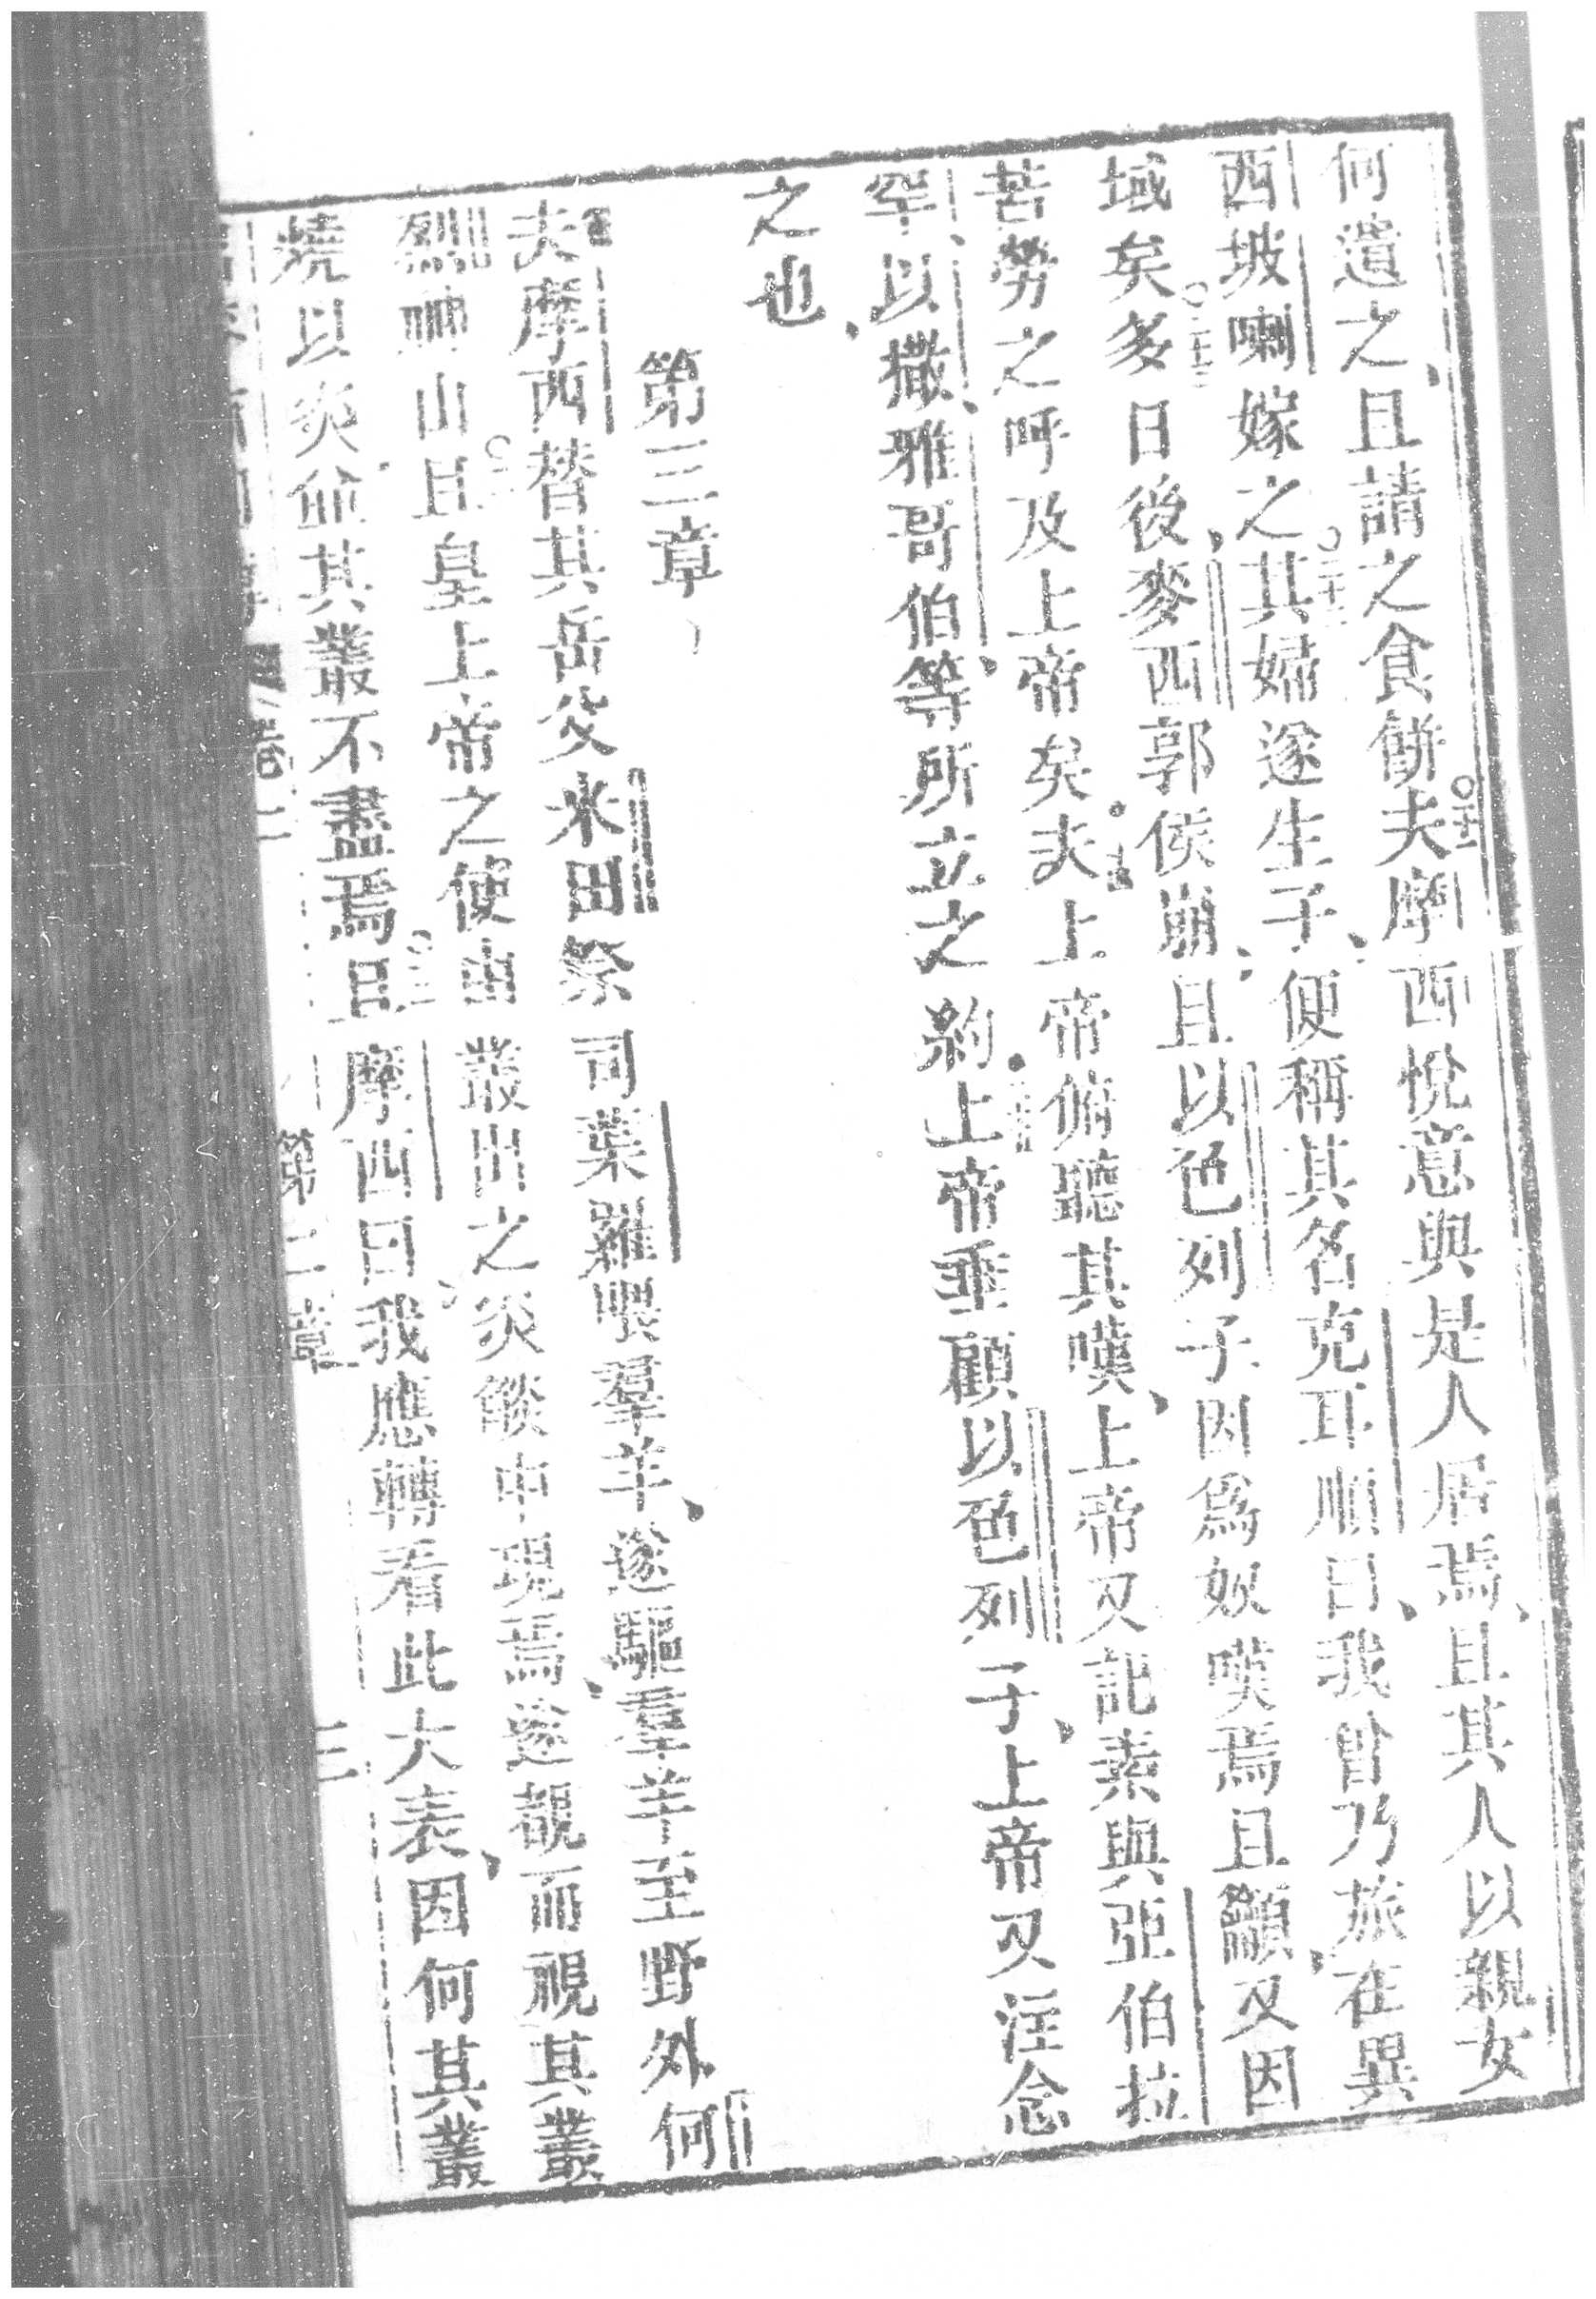 何遺之、且請之食餅○二十一夫摩西悅意與是人居焉、且其人以親女
西坡喇嫁之、○二十二其婦遂生子、便稱其名克耳順曰、我曾乃旅在異
域矣○二十三多日後麥西郭侯崩、且以色列子因爲奴嘆焉且籲、又因
苦勞之呼及上帝矣夫上帝俯聽其嘆、上帝又記素與亞伯拉
罕、以撒、雅哥伯、等所立之約上帝垂顧以色列子、上帝又注念
之也、
第三章
夫摩西替其岳父米田祭司葉羅喂羣羊、遂驅羣羊至野外何
烈山且皇上帝之使由叢出之炎燄中現焉、遂覩而視其叢
燒以炎而其叢不盡焉且摩西曰我應轉看此大表、因何其叢
卷二
第三章
三